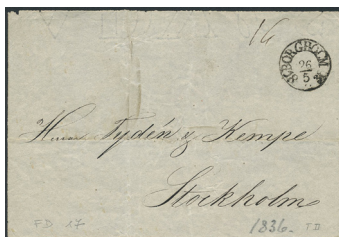 14
BORGHOLM
26
5
Herrar Tydén & Kempe
Stockholm
FD 17
1836.